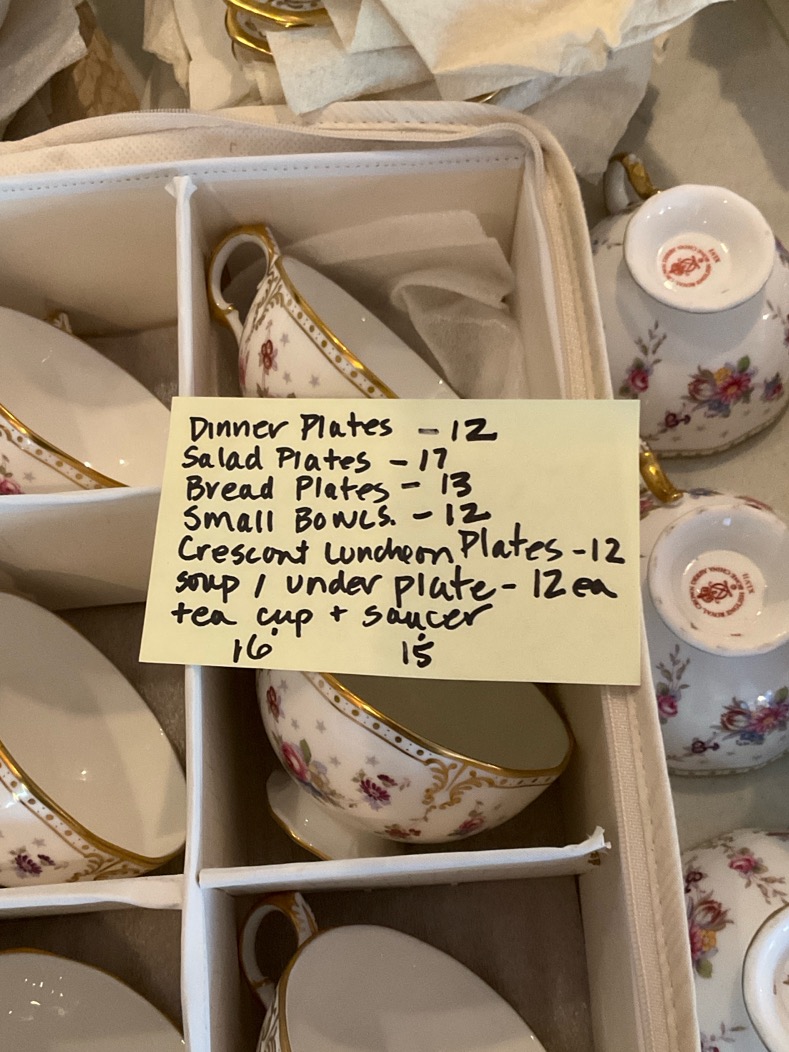 Dinner Plates - 12
Salad Plates - 17
Bread Plates - 13
Small Bowls. - 12
Crescont Luncheon Plates - 12
soup / under plate - 12 ea
tea cup + saucer
16 15